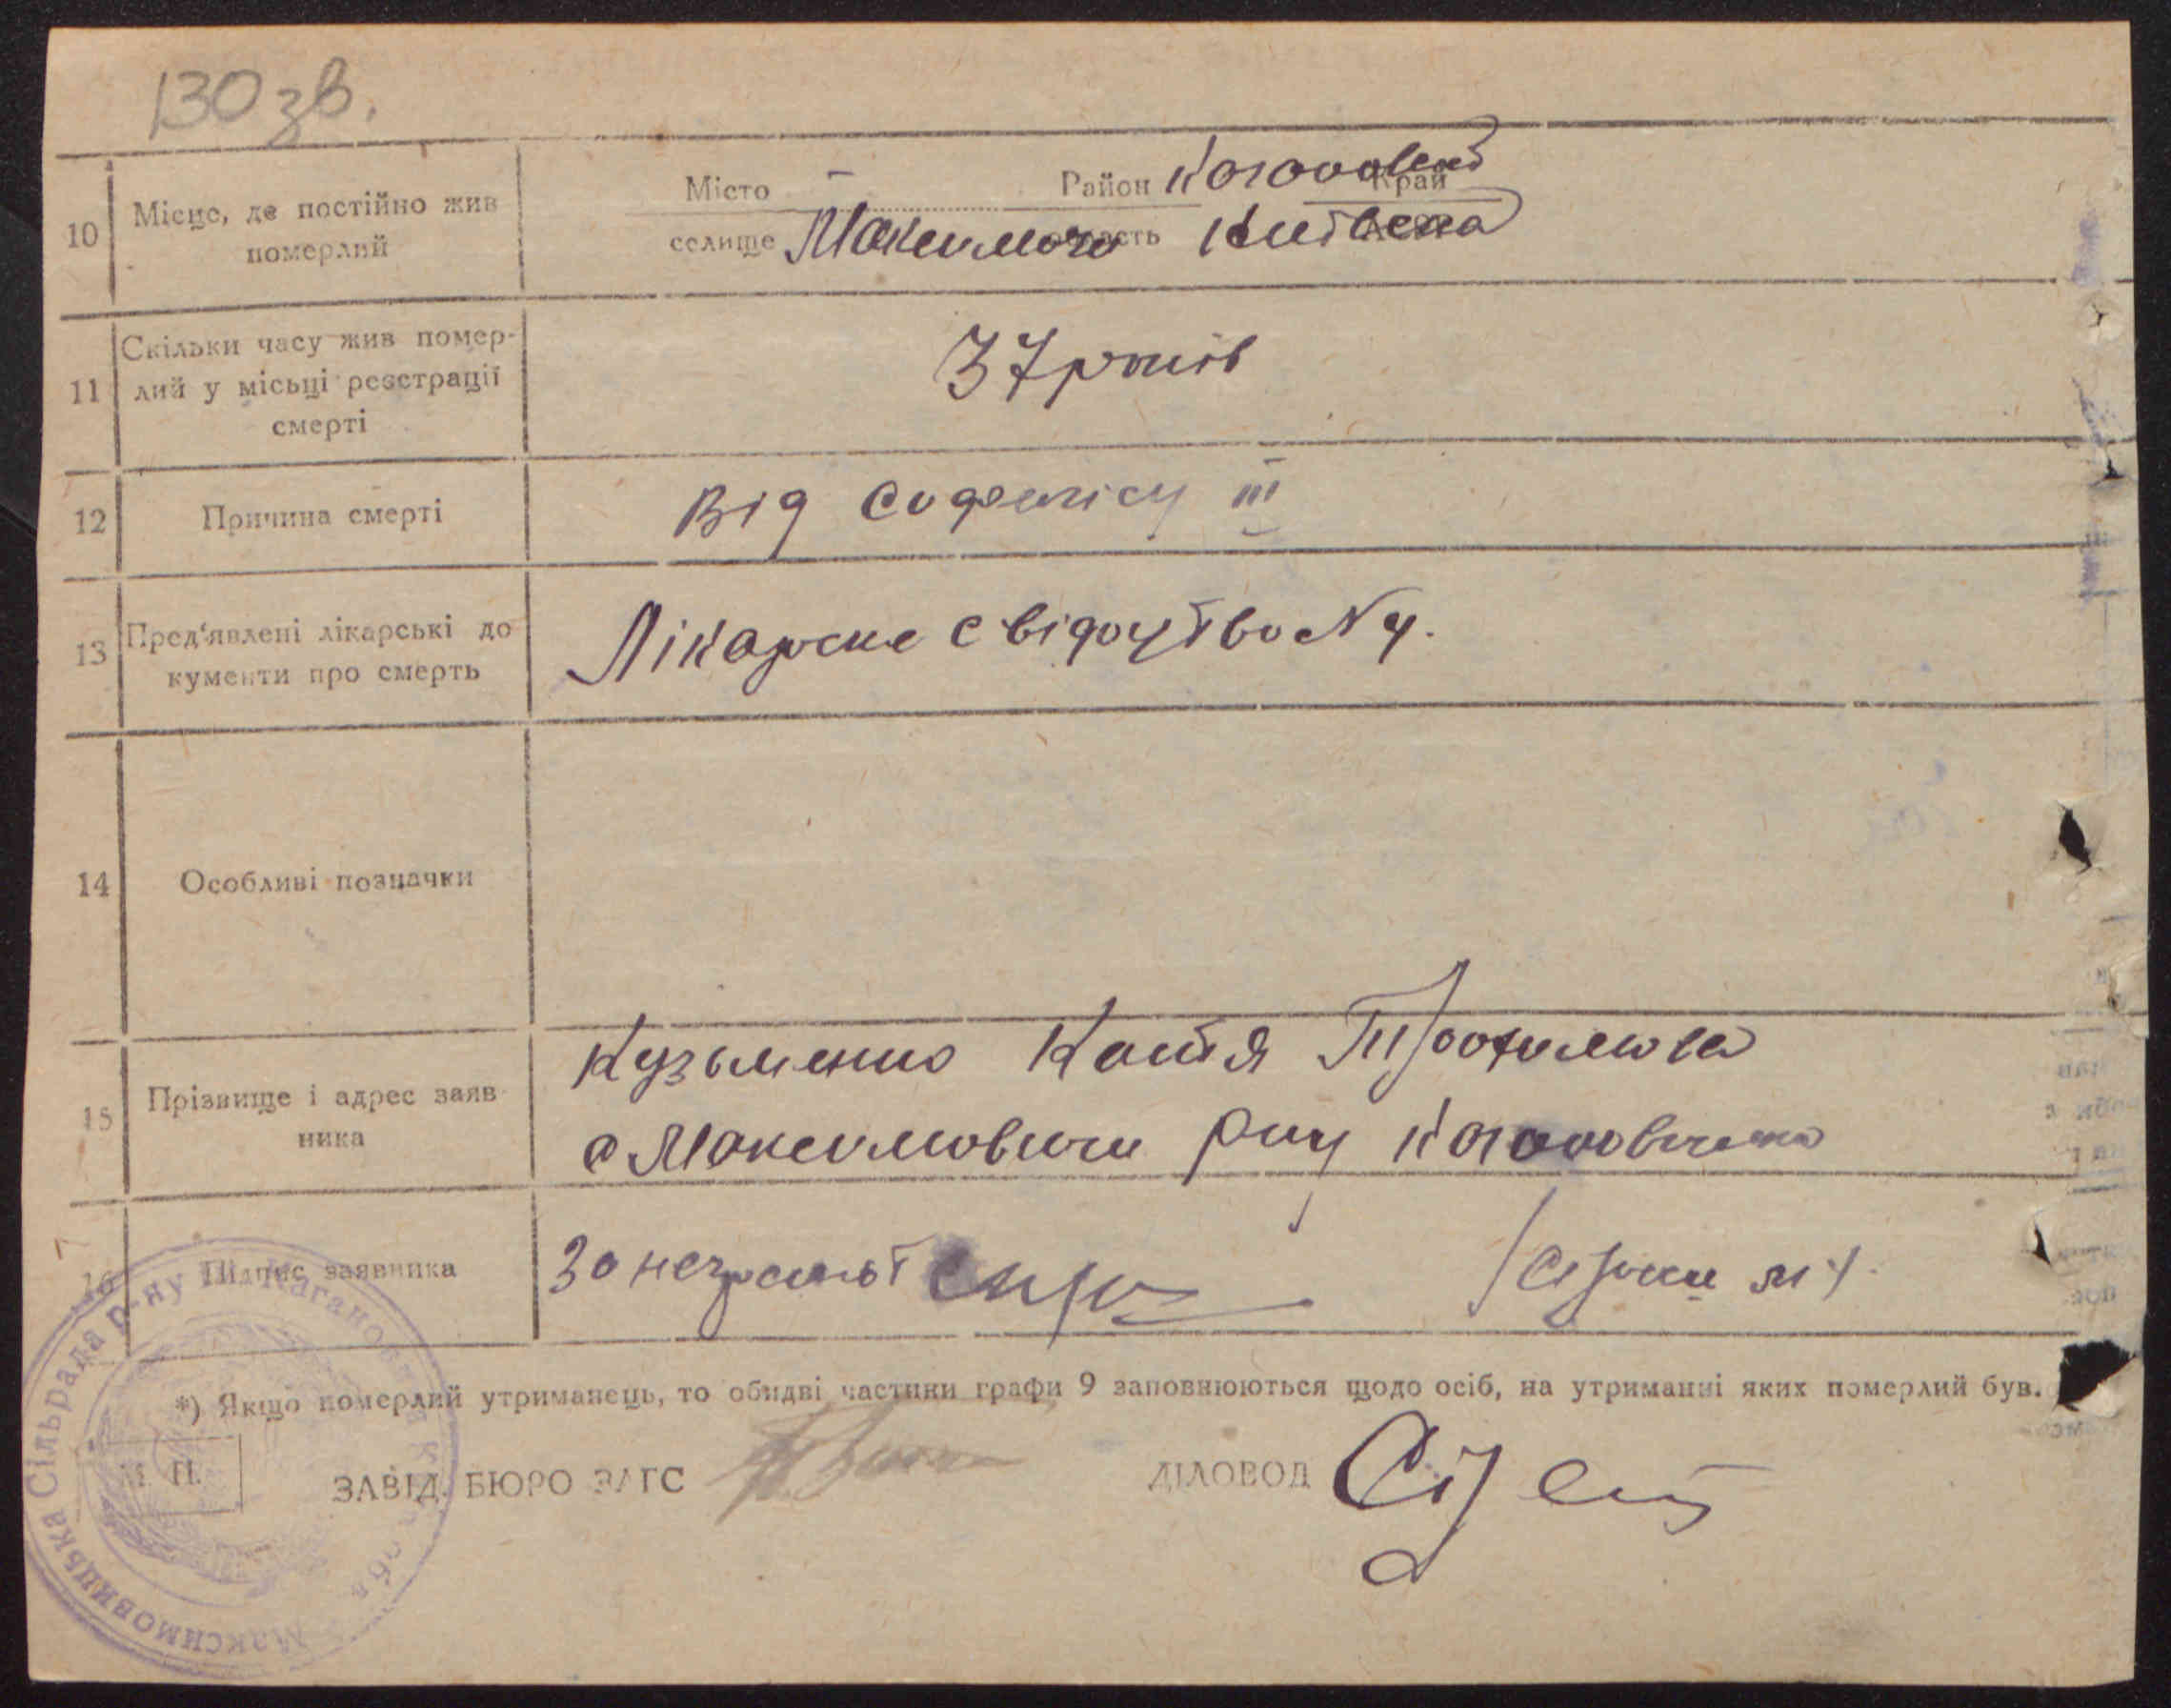 130 зв.
10 Місце, де постійно жив померлий
Місто — Район Кагановичі Край
селище Максимовичі область Київська
11 Скільки часу жив помер-
лий у місьці реєстрації
смерті
37 років
12 Причина смерті
Від сифилісу III
13 Пред'явлені лікарські до
кументи про смерть
Лікарське свідоцтво N 4.
14 Особливі позначки
15 Прізвище і адрес заяв
ника
Кузьменко Катя Трофимова
с Максимовичи р-ну Кагановичина
16 Підпис заявника
За неграмот
*) Якщо померлий утриманець, то обидві частини графи 9 заповнюються щодо осіб, на утриманні яких померлий був.
М. П.
ЗАВІД. БЮРО ЗАГС
ДІЛОВОД
Максимовицька Сільрада р-ну ім. Кагановича К. обл